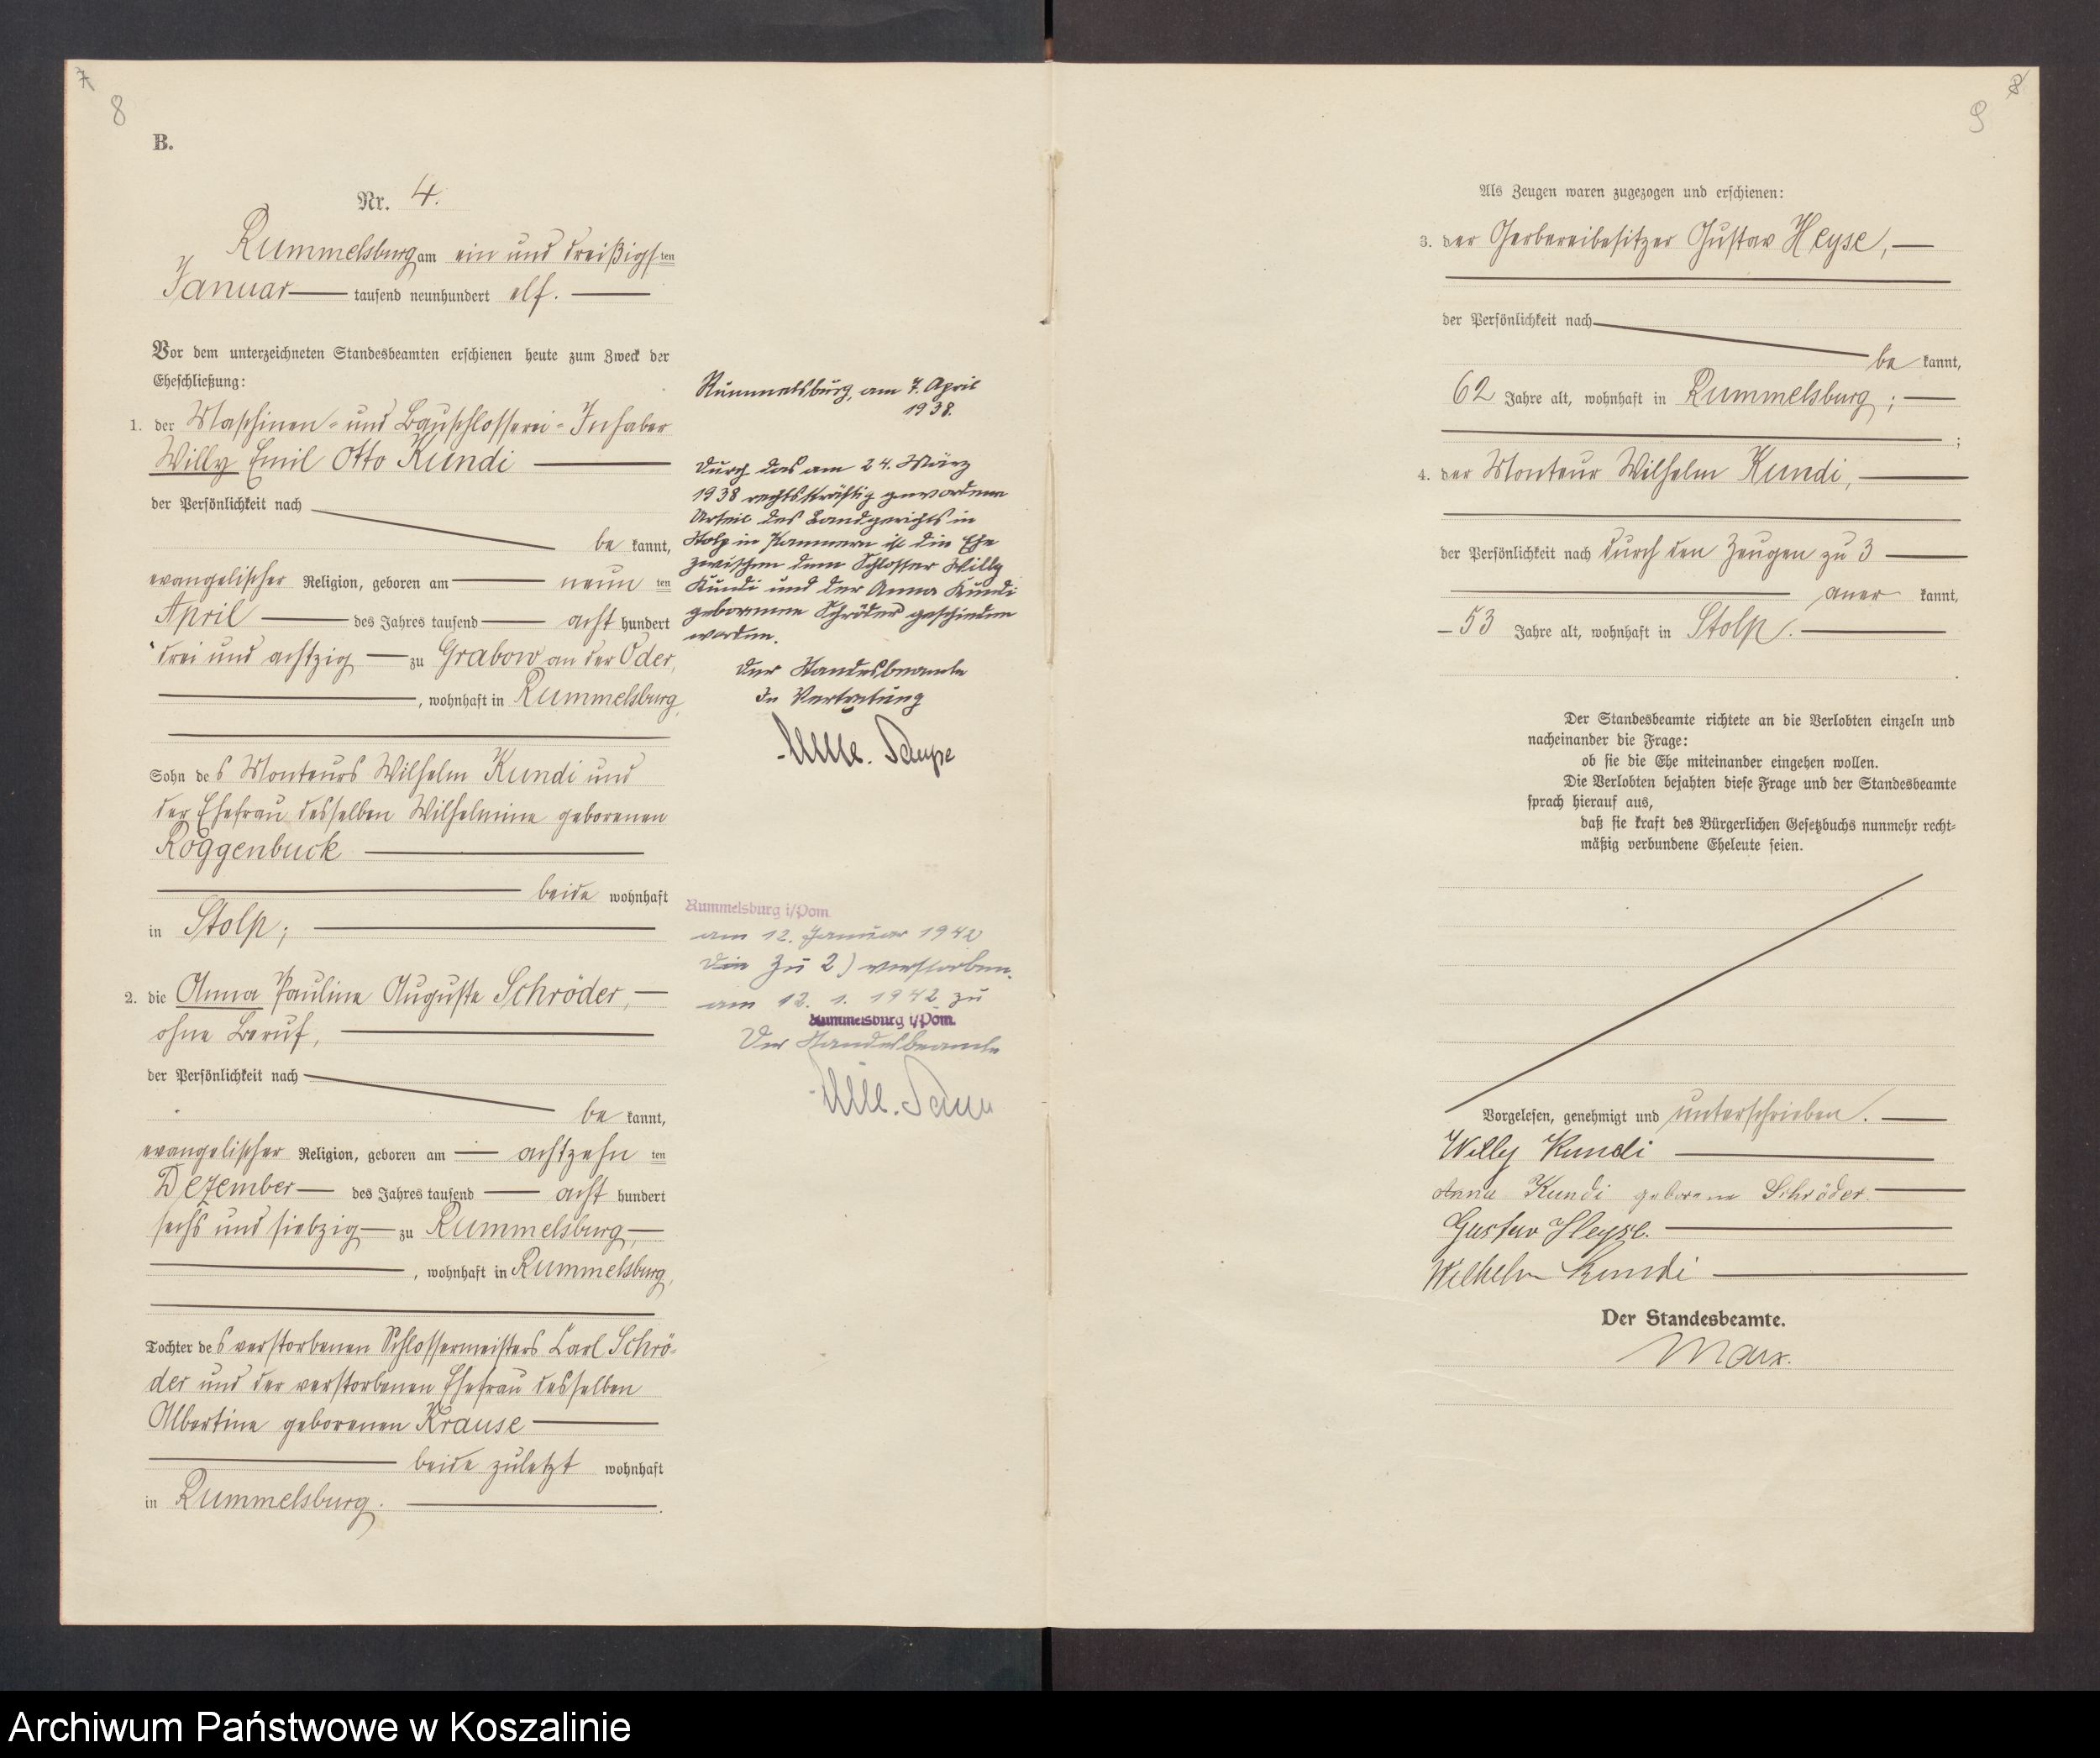 7
8
B.
Nr. 4.
Rummelsburg am ein und dreißigsten
Januar tausend neunhundert elf.
Vor dem unterzeichneten Standesbeamten erschienen heute zum Zweck der
Eheschließung:
1. der Maschinen- und Bauschlosserei-Inhaber
Willy Emil Otto Kundi
der Persönlichkeit nach
be kannt,
evangelischer Religion, geboren am neun ten
April des Jahres tausend acht hundert
drei und achtzig zu Grabow an der Oder,
, wohnhaft in Rummelsburg,
Sohn des Monteurs Wilhelm Kundi und
der Ehefrau desselben Wilhelmine geborenen
Roggenbuck
beide wohnhaft
in Stolp;
2. die Anna Pauline Auguste Schröder,
ohne Beruf,
der Persönlichkeit nach
be kannt,
evangelischer Religion, geboren am achtzehn ten
Dezember des Jahres tausend acht hundert
sechs und siebzig zu Rummelsburg,
, wohnhaft in Rummelsburg,
Tochter des verstorbenen Schlossermeisters Carl Schrö-
der und der verstorbenen Ehefrau desselben
Albertine geborenen Krause
beide zuletzt wohnhaft
in Rummelsburg.
Rummelsburg, am 7. April
1938.
Durch das am 24. März
1938 rechtskräftig gewordene
Urteil des Landgerichts in
Stolp in Pommern ist die Ehe
zwischen dem Schlosser Willy
Kundi und der Anna Kundi
geborenen Schröder geschieden
worden.
Der Standesbeamte
In Vertretung
Rummelsburg i/Pom.
am 12. Januar 1942
Die zu 2) verstorben
am 12. 1. 1942 zu
Rummelsburg i/Pom.
Der Standesbeamte
8
9
Als Zeugen waren zugezogen und erschienen:
3. der Gerbereibesitzer Gustav Heyse,
der Persönlichkeit nach
be kannt,
62 Jahre alt, wohnhaft in Rummelsburg;
;
4. der Monteur Wilhelm Kundi,
der Persönlichkeit nach durch den Zeugen zu 3
aner kannt,
53 Jahre alt, wohnhaft in Stolp.
Der Standesbeamte richtete an die Verlobten einzeln und
nacheinander die Frage:
ob sie die Ehe miteinander eingehen wollen.
Die Verlobten bejahten diese Frage und der Standesbeamte
sprach hierauf aus,
daß sie kraft des Bürgerlichen Gesetzbuchs nunmehr recht-
mäßig verbundene Eheleute seien.
Vorgelesen, genehmigt und unterschrieben.
Willy Kundi
Anna Kundi geborene Schröder.
Gustav Heyse.
Wilhelm Kundi
Der Standesbeamte.
Marx.
Archiwum Państwowe w Koszalinie